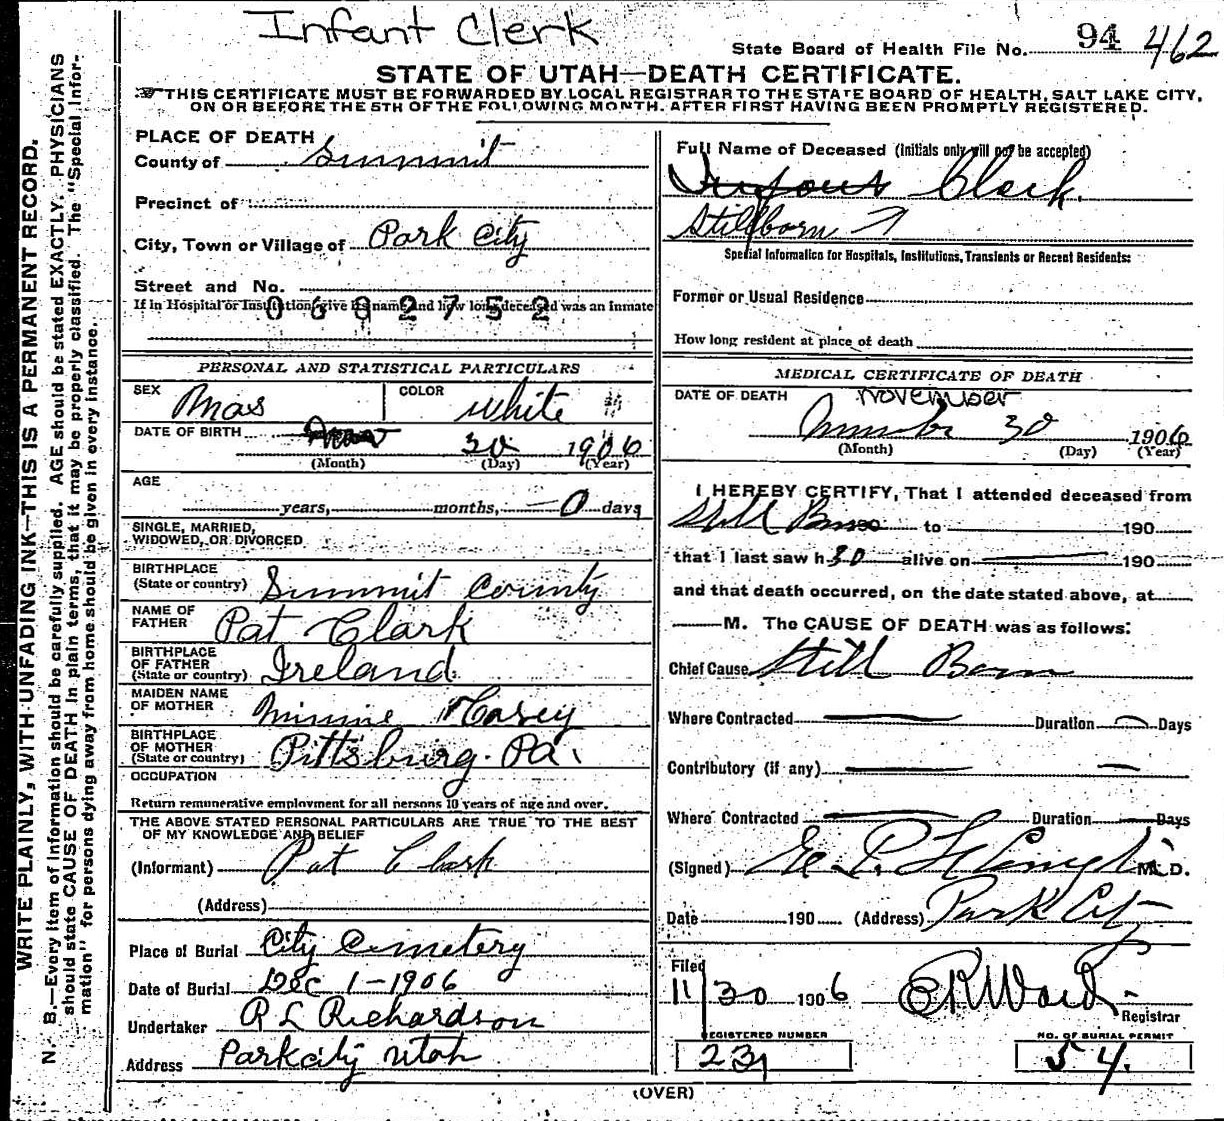 Infant Clerk
State Board of Health File No. 94 462
STATE OF UTAH—DEATH CERTIFICATE.
THIS CERTIFICATE MUST BE FORWARDED BY LOCAL REGISTRAR TO THE STATE BOARD OF HEALTH, SALT LAKE CITY,
ON OR BEFORE THE 5TH OF THE FOLLOWING MONTH. AFTER FIRST HAVING BEEN PROMPTLY REGISTERED.
WRITE PLAINLY, WITH UNFADING INK—THIS IS A PERMANENT RECORD.
N. B.—Every item of information should be carefully supplied. AGE should be stated EXACTLY. PHYSICIANS
should state CAUSE OF DEATH in plain terms, that it may be properly classified. The "Special Infor-
mation" for persons dying away from home should be given in every instance.
PLACE OF DEATH
County of Summit
Precinct of
City, Town or Village of Park City
Street and No.
If in Hospital or Institution, give its name and how long deceased was an inmate
0692752
PERSONAL AND STATISTICAL PARTICULARS
SEX Mas COLOR White
DATE OF BIRTH 30 1906
(Month) (Day) (Year)
AGE
years, months, 0 days
SINGLE, MARRIED,
WIDOWED, OR DIVORCED
BIRTHPLACE
(State or country) Summit County
NAME OF
FATHER Pat Clark
BIRTHPLACE
OF FATHER
(State or country) Ireland
MAIDEN NAME
OF MOTHER Minnie Casey
BIRTHPLACE
OF MOTHER
(State or country) Pittsburg. Pa.
OCCUPATION
Return remunerative employment for all persons 10 years of age and over.
THE ABOVE STATED PERSONAL PARTICULARS ARE TRUE TO THE BEST
OF MY KNOWLEDGE AND BELIEF
(Informant) Pat Clark
(Address)
Place of Burial City Cemetery
Date of Burial Dec 1-1906
Undertaker R L Richardson
Address Parkcity Utah
Full Name of Deceased (Initials only will not be accepted)
Clark.
Stillborn
Special Information for Hospitals, Institutions, Transients or Recent Residents:
Former or Usual Residence
How long resident at place of death
MEDICAL CERTIFICATE OF DEATH
DATE OF DEATH November
30 1906
(Month) (Day) (Year)
I HEREBY CERTIFY, That I attended deceased from
Still Born to 190
that I last saw h30 alive on 190
and that death occurred, on the date stated above, at
M. The CAUSE OF DEATH was as follows:
Chief Cause Still Born
Where Contracted Duration Days
Contributory (if any)
Where Contracted Duration Days
(Signed) M. D.
Date 190 (Address) Park City
Filed
11/30 1906 E R Ward
Registrar
REGISTERED NUMBER NO. OF BURIAL PERMIT
231 54.
(OVER)